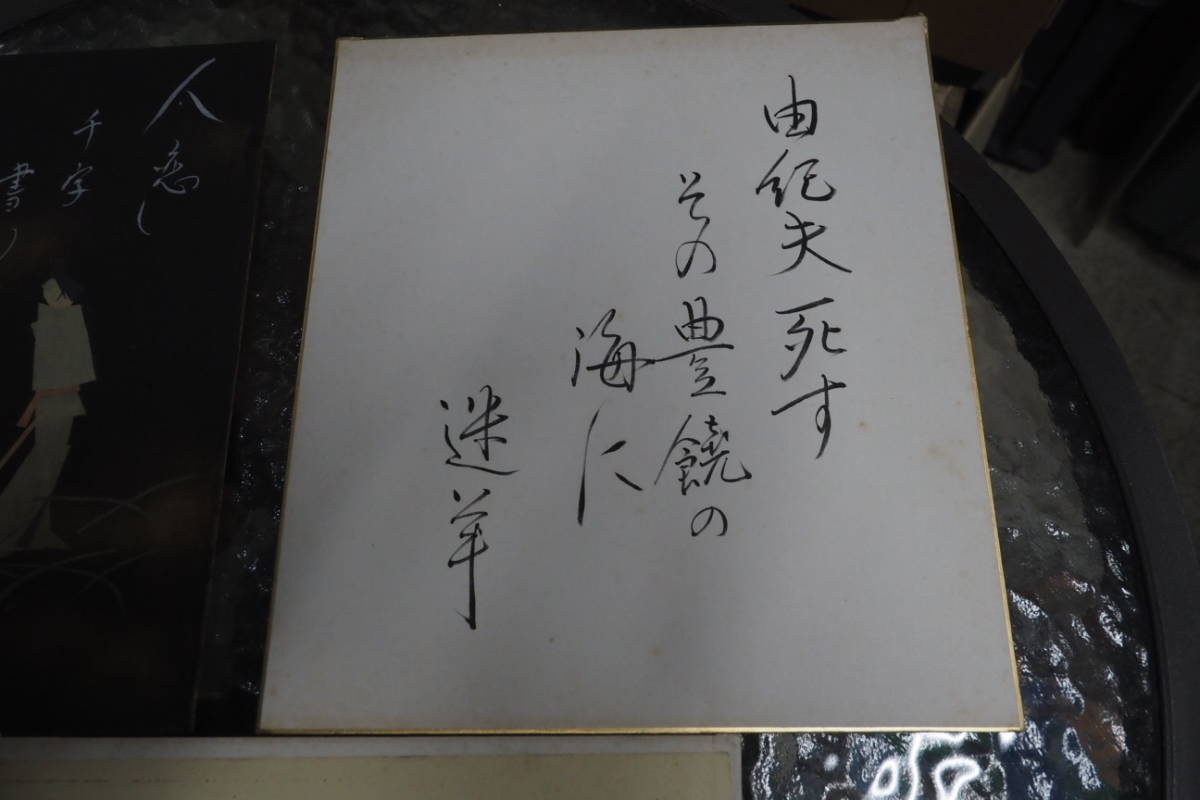 由紀夫死す
その豊饒の
海に
迷羊
人恋し
千字
書